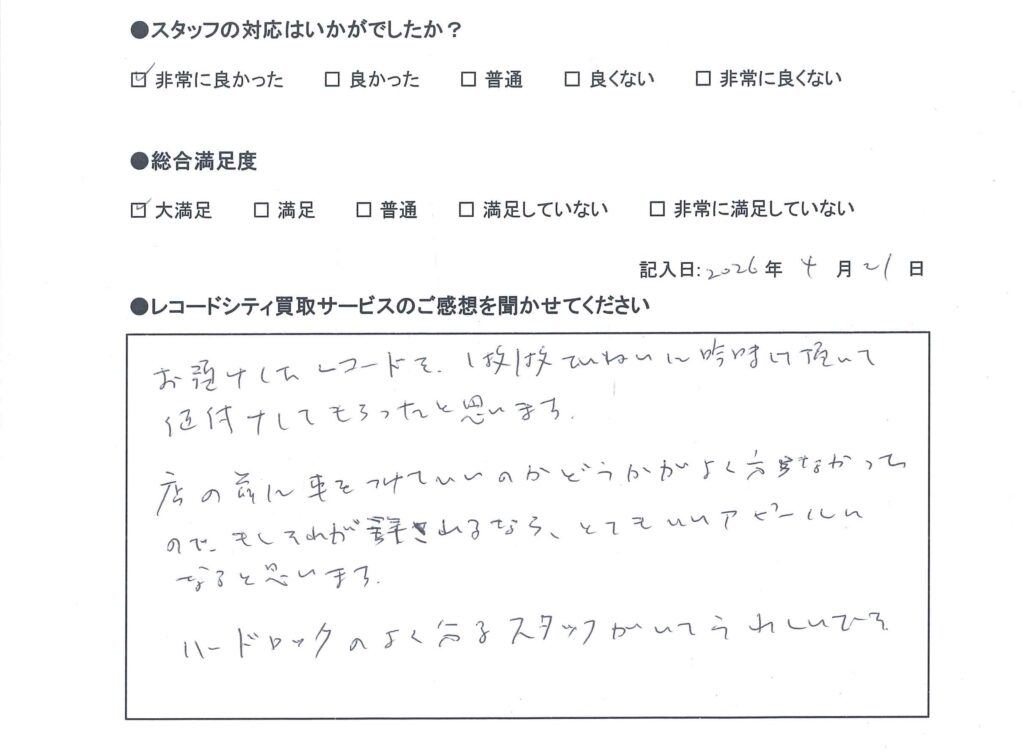 ●スタッフの対応はいかがでしたか？
☑ 非常に良かった □ 良かった □ 普通 □ 良くない □ 非常に良くない
●総合満足度
☑ 大満足 □ 満足 □ 普通 □ 満足していない □ 非常に満足していない
記入日: 2026 年 4 月 21 日
●レコードシティ買取サービスのご感想を聞かせてください
お預けしたレコードを、1枚1枚ていねいに吟味し頂いて
値付けしてもらったと思います。
店の前に車をつけていいのかどうかがよく分らなかった
ので、もしそれが許されるなら、とてもいいアピールに
なると思います。
ハードロックのよく分るスタッフがいてうれしいです